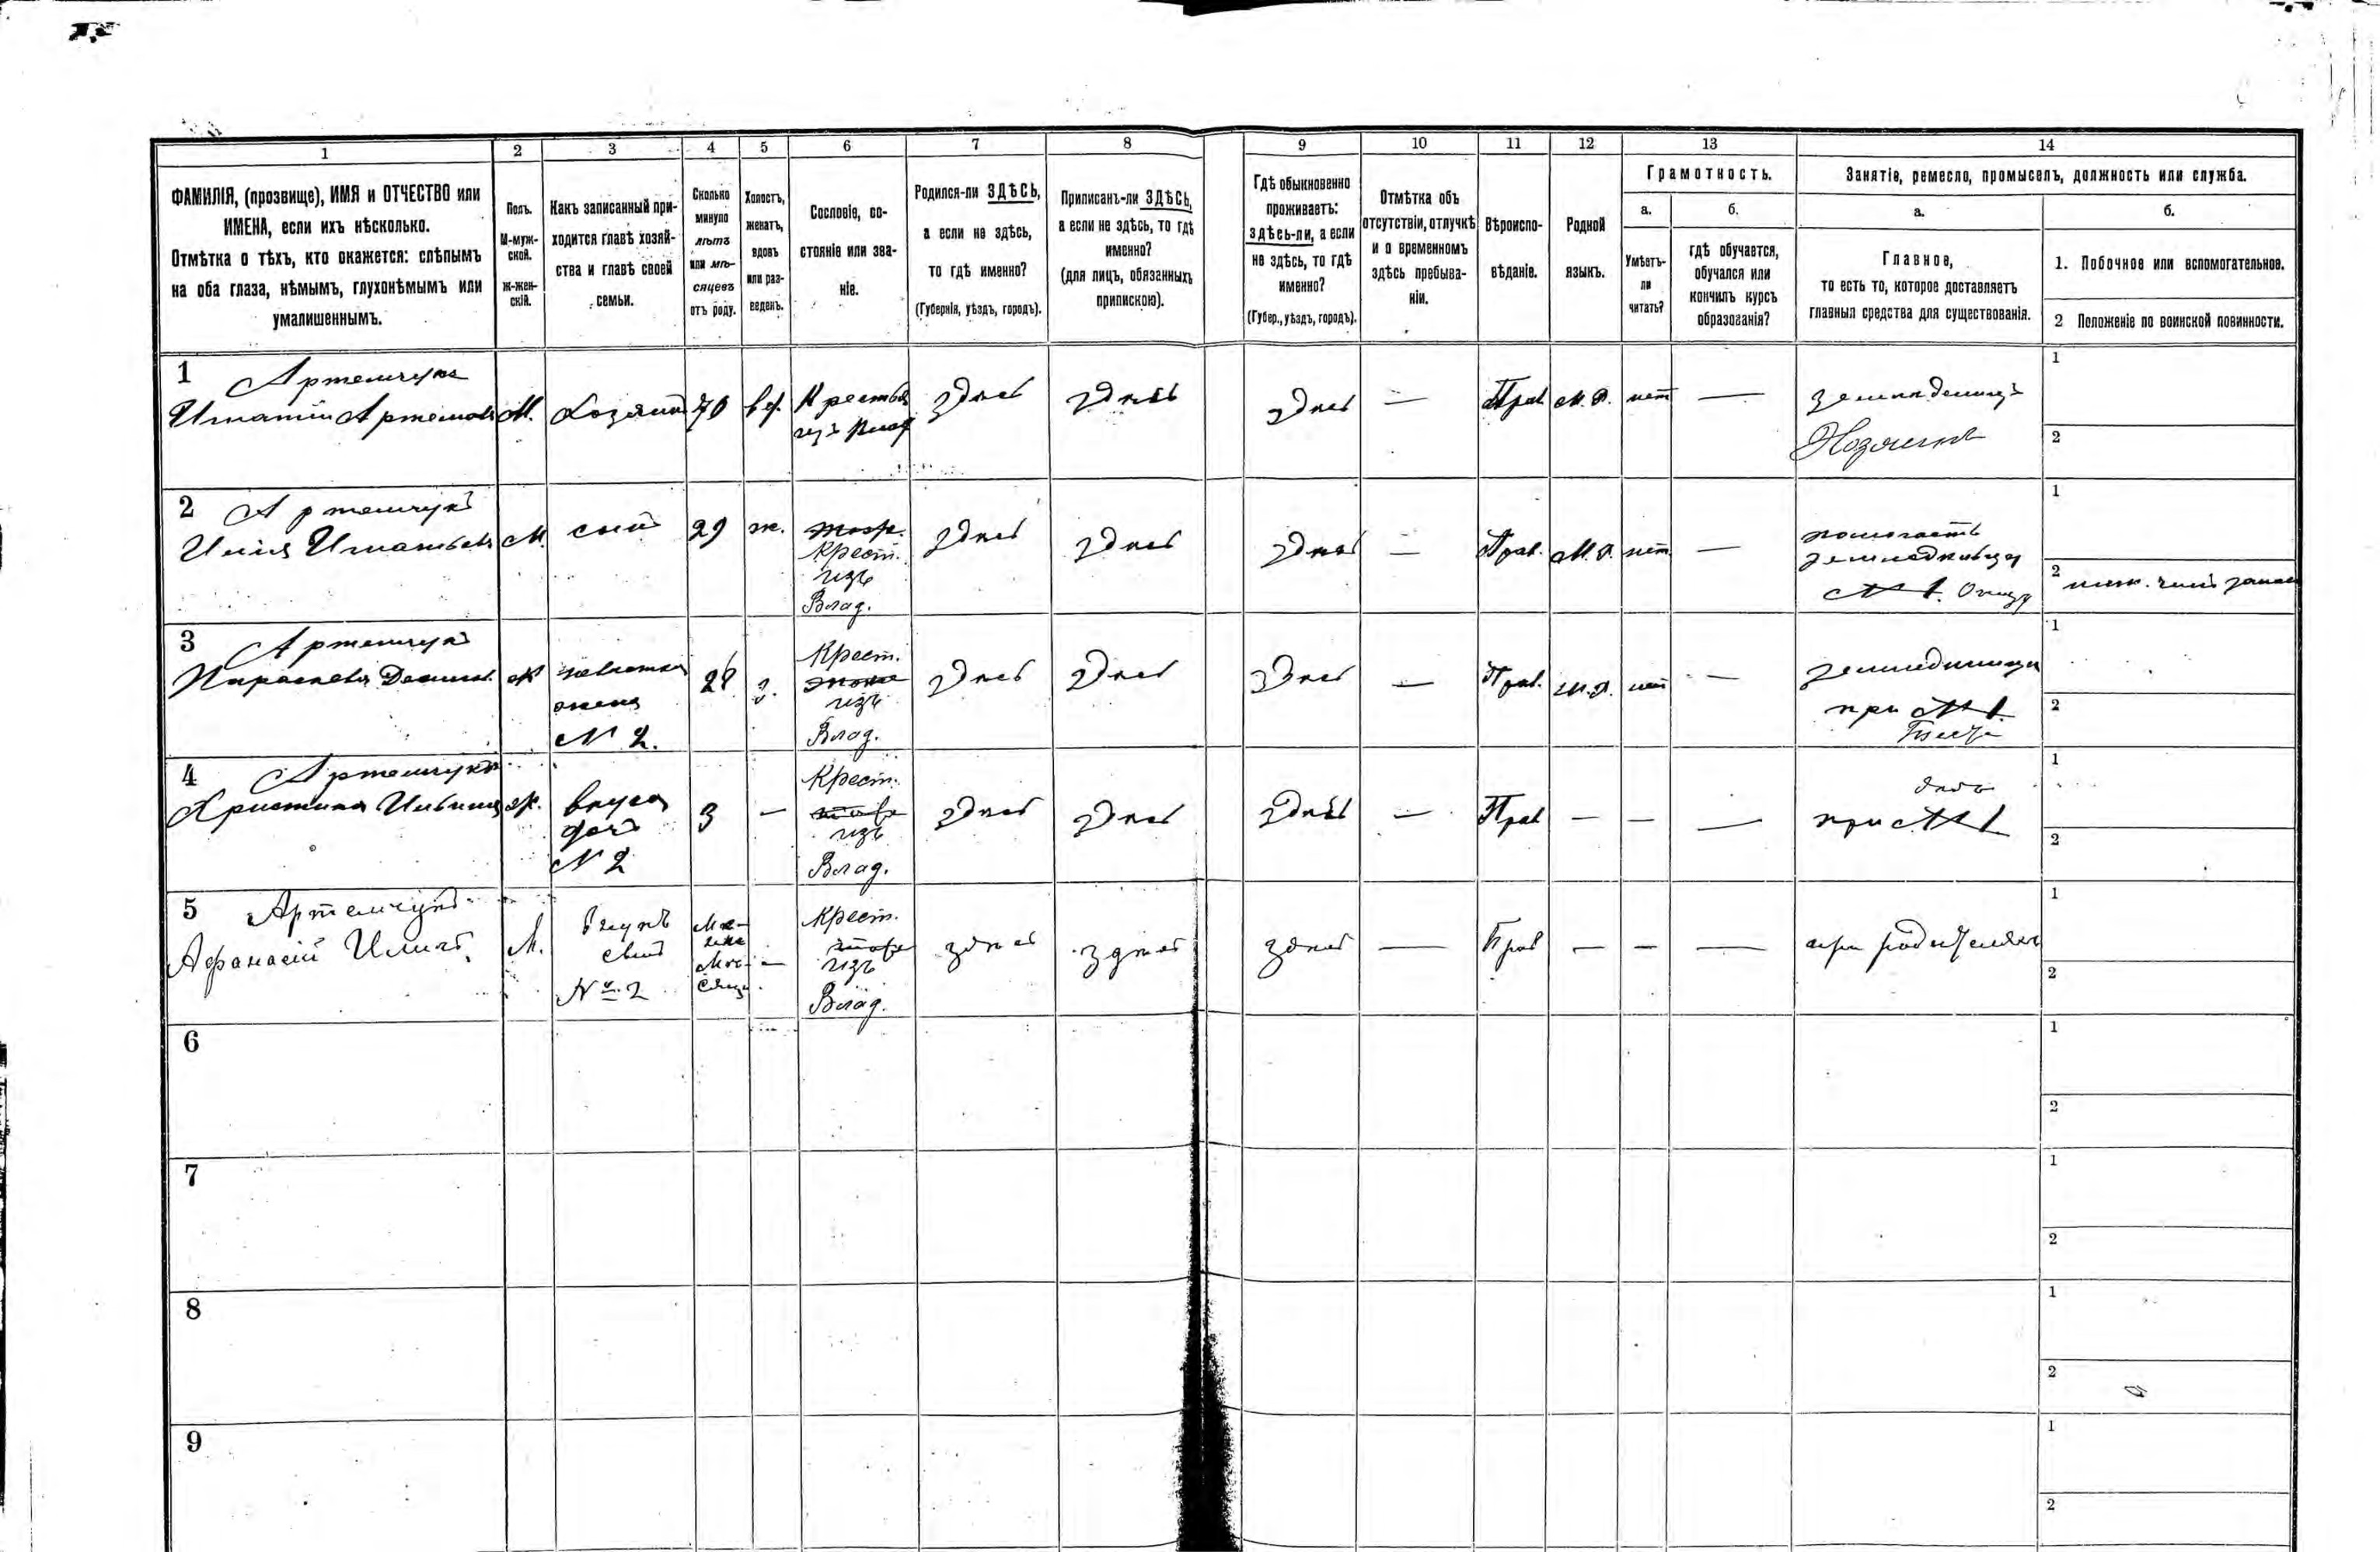 1
2
3
4
5
6
7
8
9
10
11
12
13
14
ФАМИЛІЯ, (прозвище), ИМЯ и ОТЧЕСТВО или
ИМЕНА, если ихъ нѣсколько.
Отмѣтка о тѣхъ, кто окажется: слѣпымъ
на оба глаза, нѣмымъ, глухонѣмымъ или
умалишеннымъ.
Полъ.
М-муж-
ской.
Ж-жен-
скій.
Какъ записанный при-
ходится главѣ хозяй-
ства и главѣ своей
семьи.
Сколько
минуло
лѣтъ
или мѣ-
сяцевъ
отъ роду.
Холостъ,
женатъ,
вдовъ
или раз-
веденъ.
Сословіе, со-
стояніе или зва-
ніе.
Родился-ли ЗДѢСЬ,
а если не здѣсь,
то гдѣ именно?
(Губернія, уѣздъ, городъ).
Приписанъ-ли ЗДѢСЬ,
а если не здѣсь, то гдѣ
именно?
(для лицъ, обязанныхъ
припискою).
Гдѣ обыкновенно
проживаетъ:
здѣсь-ли, а если
не здѣсь, то гдѣ
именно?
(Губер., уѣздъ, городъ).
Отмѣтка объ
отсутствіи, отлучкѣ
и о временномъ
здѣсь пребыва-
ніи.
Вѣроиспо-
вѣданіе.
Родной
языкъ.
Грамотность.
а.
б.
Умѣетъ-
ли
читать?
гдѣ обучается,
обучался или
кончилъ курсъ
образованія?
Занятіе, ремесло, промыселъ, должность или служба.
а.
б.
Главное,
то есть то, которое доставляетъ
главныя средства для существованія.
1. Побочное или вспомогательное.
2 Положеніе по воинской повинности.
1 Артемчукъ
Игнатій Артемовъ М. Хозяинъ 70 вд. Крестья
изъ Влад
здѣсь здѣсь здѣсь — Прав М. Р. нет — земледѣлецъ
Хозяинъ
1
2
2 Артемчукъ
Илія Игнатьевъ М. сынъ 29 ж.
Крест.
изъ
Влад.
здѣсь здѣсь здѣсь — Прав. М. Р. нет —
помогаетъ
земледѣльцу
№ 1. Отцу
1
2 ниж. чинъ запаса
3 Артемчукъ
Параскева ж невестка
жена
№ 2.
28 з.
Крест.
изъ
Влад.
здѣсь здѣсь здѣсь — Прав. М. Р. нет —
при № 1.
1
2
4 Артемчукъ
Христина Ильина ж. внука
дочь
№ 2
3 —
Крест.
изъ
Влад.
здѣсь здѣсь здѣсь — Прав — — —
при № 1
1
2
5 Артемчукъ
Афанасій Иличъ М. внукъ
сынъ
№ 2
Крест.
изъ
Влад.
здѣсь здѣсь здѣсь — Прав — — — при родителяхъ
1
2
6
1
2
7
1
2
8
1
2
9
1
2